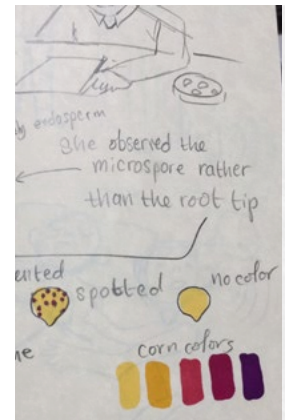 endosperm
She observed the
microspore rather
than the root tip
spotted
no color
corn colors